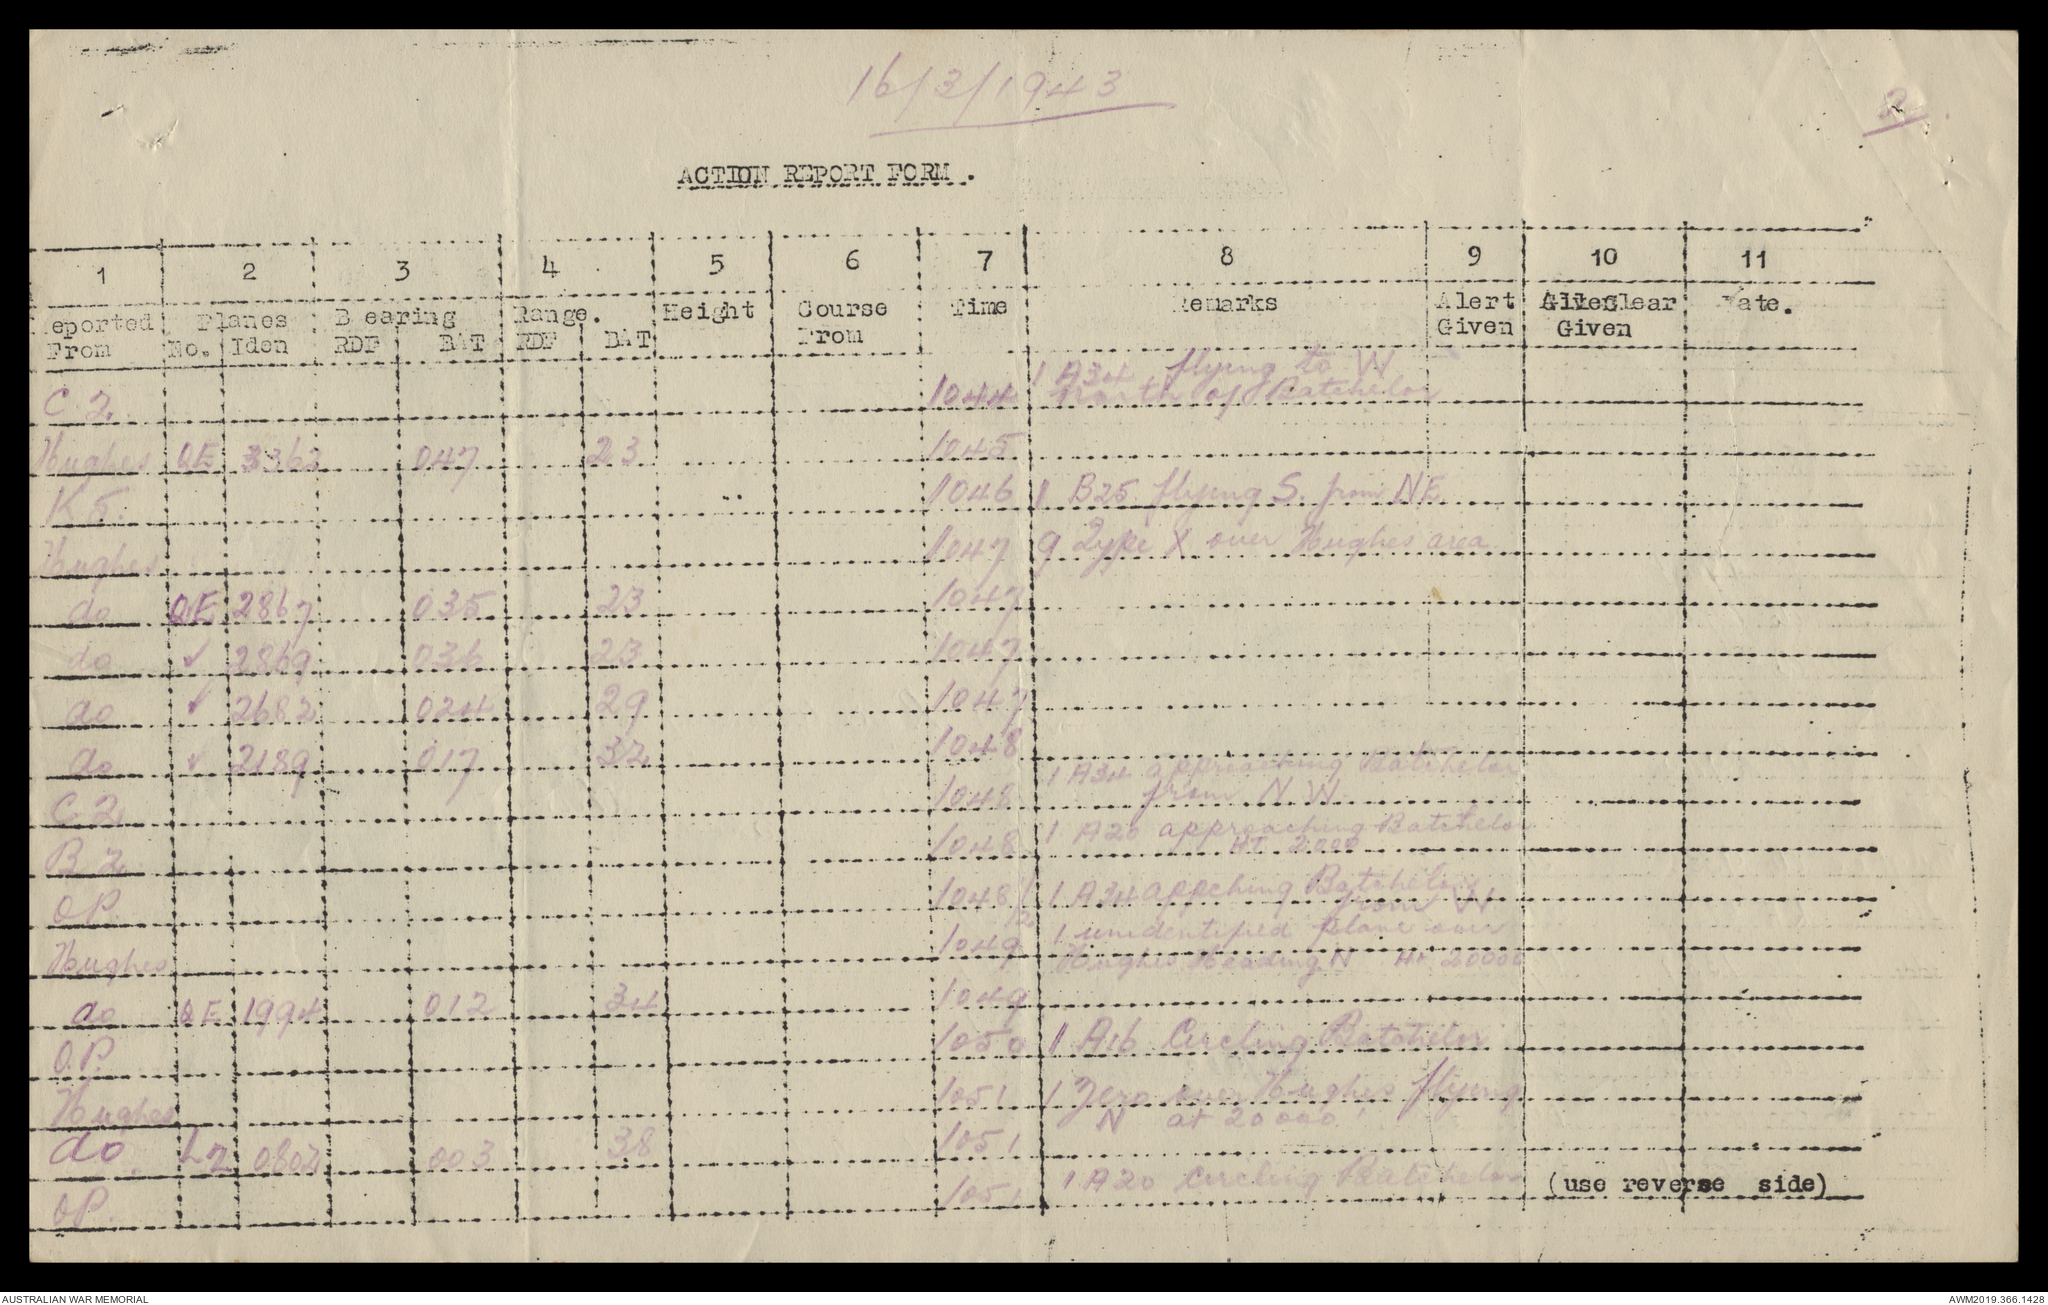 16/3/1943
2
ACTION REPORT FORM.
1 2 3 4 5 6 7 8 9 10 11
Reported From Planes No. Iden Bearing RDF BAT Range. RDF BAT Height Course From Time Remarks Alert Given Given Date.
C 2. 1044 1 A34 flying to W
north of Batchelor
Hughes QE 3362 047 23 1045
K 5. 1046 1 B25 flying S. from NE
Hughes 1047 9 Type X over Hughes area
do QE 2867 035 23 1047
do ✓ 2869 036 23 1047
do ✓ 2682 024 29 1047
do ✓ 2189 017 32 1048
C 2 1048 1 A34 approaching Batchelor
from NW
B 2 1048 1 A20 approaching Batchelor
HT 2000
OP. 1048 1/2 1 A34 appching Batchelor
from W
Hughes 1049 1 unidentified plane over
Hughes Heading N Ht 20000
do QE 1994 012 34 1049
O.P. 1050 1 A16 Circling Batchelor
Hughes 1051 1 Zero over Hughes flying
N at 20000'
do. L2 0802 003 38 1051
OP. 1051 1 A20 circling Batchelor
(use reverse side)
AUSTRALIAN WAR MEMORIAL
AWM2019.366.1428